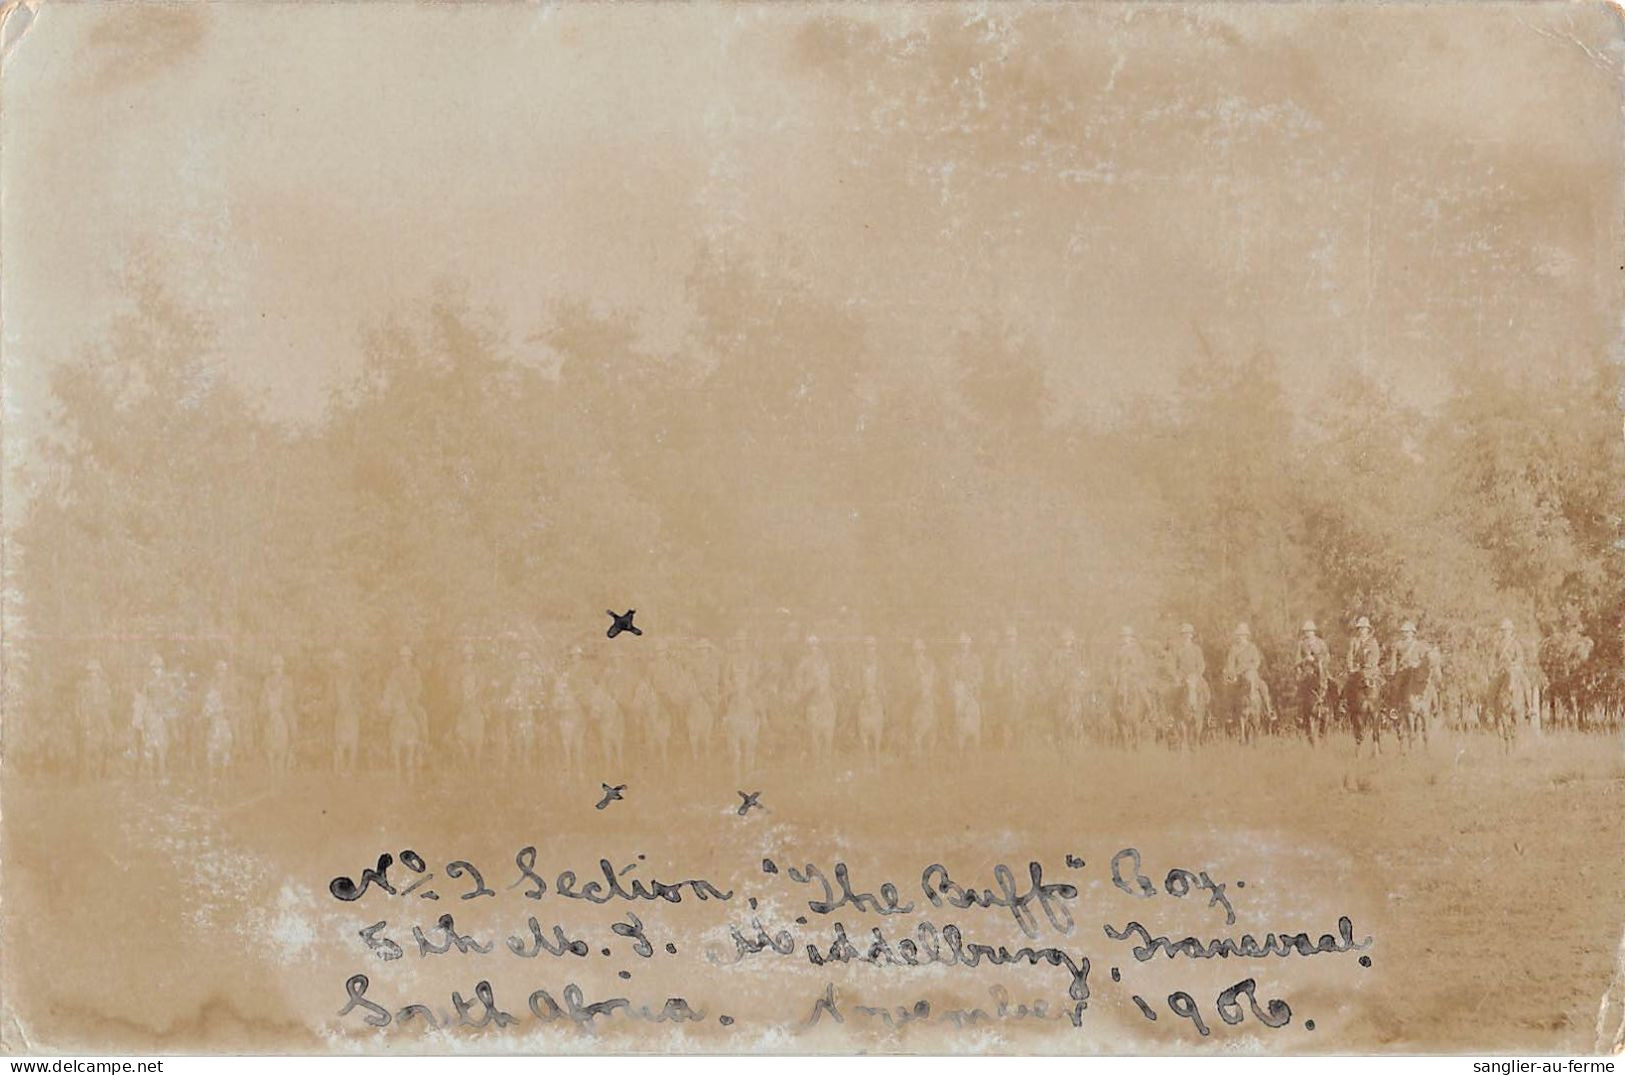 Nº 2 Section, "The Buffs" Coy.
5th M. I. Middelburg, Transvaal.
South Africa. November 1906.
delcampe.net
sanglier-au-ferme